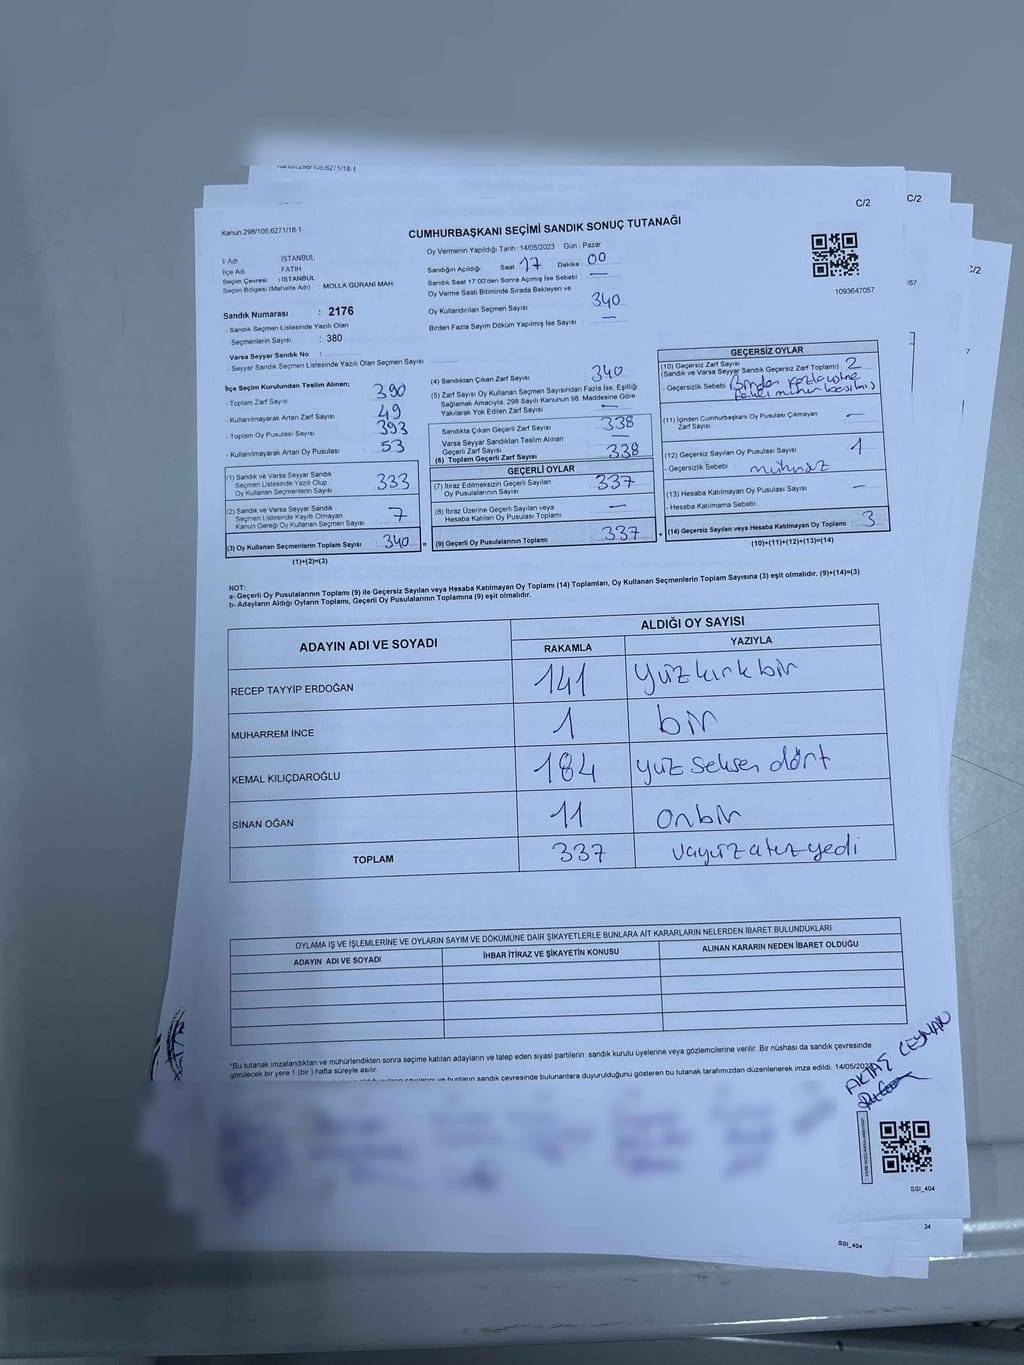 Kanun.298/105,6271/18-1
C/2
C/2
C/2
Kanun.298/105,6271/18-1
CUMHURBAŞKANI SEÇİMİ SANDIK SONUÇ TUTANAĞI
İl Adı : İSTANBUL
İlçe Adı : FATİH
Seçim Çevresi : İSTANBUL
Seçim Bölgesi (Mahalle Adı) : MOLLA GÜRANİ MAH.
Oy Vermenin Yapıldığı Tarih :14/05/2023 Gün : Pazar
Sandığın Açıldığı Saat : 17 Dakika : 00
Sandık Saat 17:00'den Sonra Açılmış İse Sebebi : —
Oy Verme Saati Bitiminde Sırada Bekleyen ve
Oy Kullandırılan Seçmen Sayısı : 340
Birden Fazla Sayım Döküm Yapılmış İse Sayısı : —
1093647057
Sandık Numarası : 2176
- Sandık Seçmen Listesinde Yazılı Olan
Seçmenlerin Sayısı : 380
Varsa Seyyar Sandık No :
- Seyyar Sandık Seçmen Listesinde Yazılı Olan Seçmen Sayısı :
İlçe Seçim Kurulundan Teslim Alınan;
- Toplam Zarf Sayısı : 390
- Kullanılmayarak Artan Zarf Sayısı : 49
- Toplam Oy Pusulası Sayısı : 393
- Kullanılmayarak Artan Oy Pusulası : 53
(1) Sandık ve Varsa Seyyar Sandık
Seçmen Listesinde Yazılı Olup
Oy Kullanan Seçmenlerin Sayısı : 333
(2) Sandık ve Varsa Seyyar Sandık
Seçmen Listesinde Kayıtlı Olmayan
Kanun Gereği Oy Kullanan Seçmen Sayısı : 7
(3) Oy Kullanan Seçmenlerin Toplam Sayısı : 340
(1)+(2)=(3)
(4) Sandıktan Çıkan Zarf Sayısı : 340
(5) Zarf Sayısı Oy Kullanan Seçmen Sayısından Fazla İse, Eşitliği
Sağlamak Amacıyla; 298 Sayılı Kanunun 98. Maddesine Göre
Yakılarak Yok Edilen Zarf Sayısı : —
Sandıkta Çıkan Geçerli Zarf Sayısı : 338
Varsa Seyyar Sandıktan Teslim Alınan
Geçerli Zarf Sayısı : —
(6) Toplam Geçerli Zarf Sayısı : 338
GEÇERLİ OYLAR
(7) İtiraz Edilmeksizin Geçerli Sayılan
Oy Pusulalarının Sayısı : 337
(8) İtiraz Üzerine Geçerli Sayılan veya
Hesaba Katılan Oy Pusulası Toplamı : —
= (9) Geçerli Oy Pusulalarının Toplamı : 337
GEÇERSİZ OYLAR
(10) Geçersiz Zarf Sayısı
(Sandık ve Varsa Seyyar Sandık Geçersiz Zarf Toplamı) : 2
- Geçersizlik Sebebi :
(11) İçinden Cumhurbaşkanı Oy Pusulası Çıkmayan
Zarf Sayısı : —
(12) Geçersiz Sayılan Oy Pusulası Sayısı : 1
- Geçersizlik Sebebi :
(13) Hesaba Katılmayan Oy Pusulası Sayısı : —
- Hesaba Katılmama Sebebi :
+ (14) Geçersiz Sayılan veya Hesaba Katılmayan Oy Toplamı : 3
(10)+(11)+(12)+(13)=(14)
NOT:
a- Geçerli Oy Pusulalarının Toplamı (9) ile Geçersiz Sayılan veya Hesaba Katılmayan Oy Toplamı (14) Toplamları, Oy Kullanan Seçmenlerin Toplam Sayısına (3) eşit olmalıdır. (9)+(14)=(3)
b- Adayların Aldığı Oyların Toplamı, Geçerli Oy Pusulalarının Toplamına (9) eşit olmalıdır.
ADAYIN ADI VE SOYADI
ALDIĞI OY SAYISI
RAKAMLA YAZIYLA
RECEP TAYYİP ERDOĞAN 141 yüzkırkbir
MUHARREM İNCE 1 bir
KEMAL KILIÇDAROĞLU 184 yüz seksen dört
SİNAN OĞAN 11 onbir
TOPLAM 337
OYLAMA İŞ VE İŞLEMLERİNE VE OYLARIN SAYIM VE DÖKÜMÜNE DAİR ŞİKAYETLERLE BUNLARA AİT KARARLARIN NELERDEN İBARET BULUNDUKLARI
ADAYIN ADI VE SOYADI İHBAR İTİRAZ VE ŞİKAYETİN KONUSU ALINAN KARARIN NEDEN İBARET OLDUĞU
*Bu tutanak imzalandıktan ve mühürlendikten sonra seçime katılan adayların ve talep eden siyasi partilerin sandık kurulu üyelerine veya gözlemcilerine verilir. Bir nüshası da sandık çevresinde
görülecek bir yere 1 (bir) hafta süreyle asılır.
bunların sandık çevresinde bulunanlara duyurulduğunu gösteren bu tutanak tarafımızdan düzenlenerek imza edildi. 14/05/2023
AKTAŞ CEYHAN
SSI_404
SSI_404
34